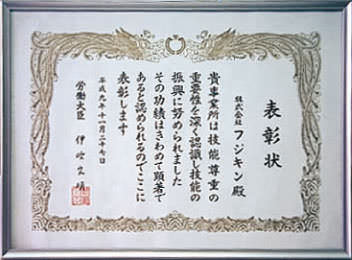 表彰状
株式会社フジキン殿
貴事業所は技能尊重の
重要性を深く認識し技能の
振興に努められました
その功績はきわめて顕著で
あると認められるのでここに
表彰します
平成九年十一月二十七日
労働大臣 伊吹文明